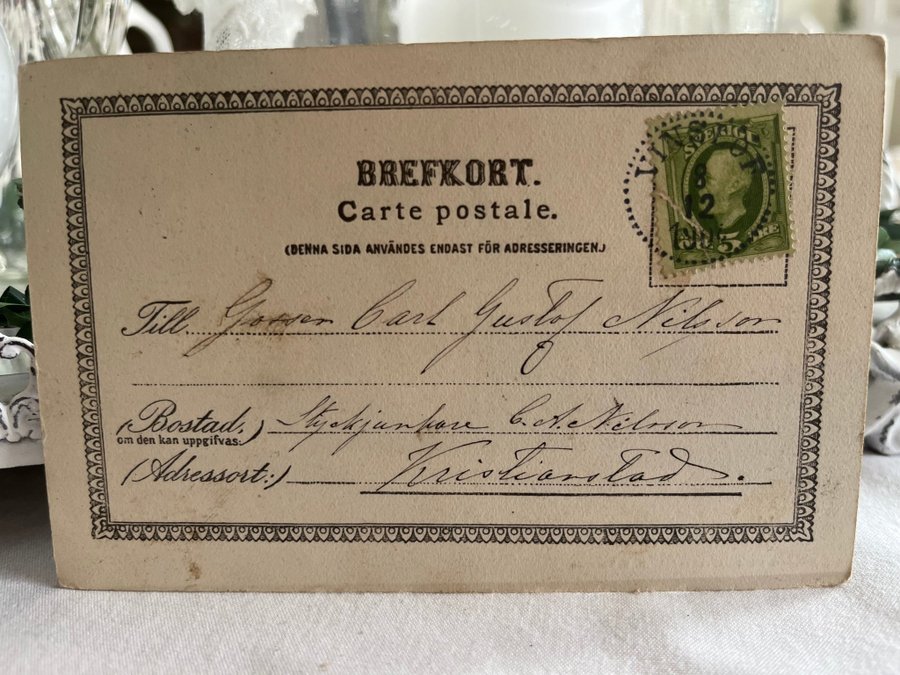 BREFKORT.
Carte postale.
(DENNA SIDA ANVÄNDES ENDAST FÖR ADRESSERINGEN.)
SVERIGE
8
12
1905
5 ÖRE
Till Gossen Carl Gustof Nilsson
(Bostad.) Styckjunkare C. A. Nilsson
om den kan uppgifvas:
(Adressort:) Kristianstad.